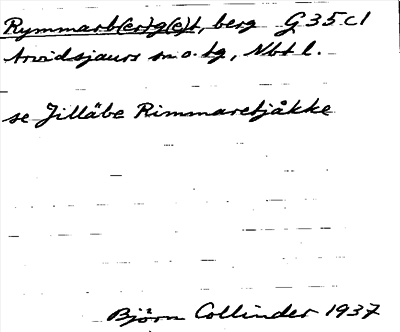 Rymmarb(er)g(e)t, berg G 35 c 1
Arvidsjaurs sn o. tg, Nbt l.
se Jillåbe Rimmaretjåkke
Björn Collinder 1937